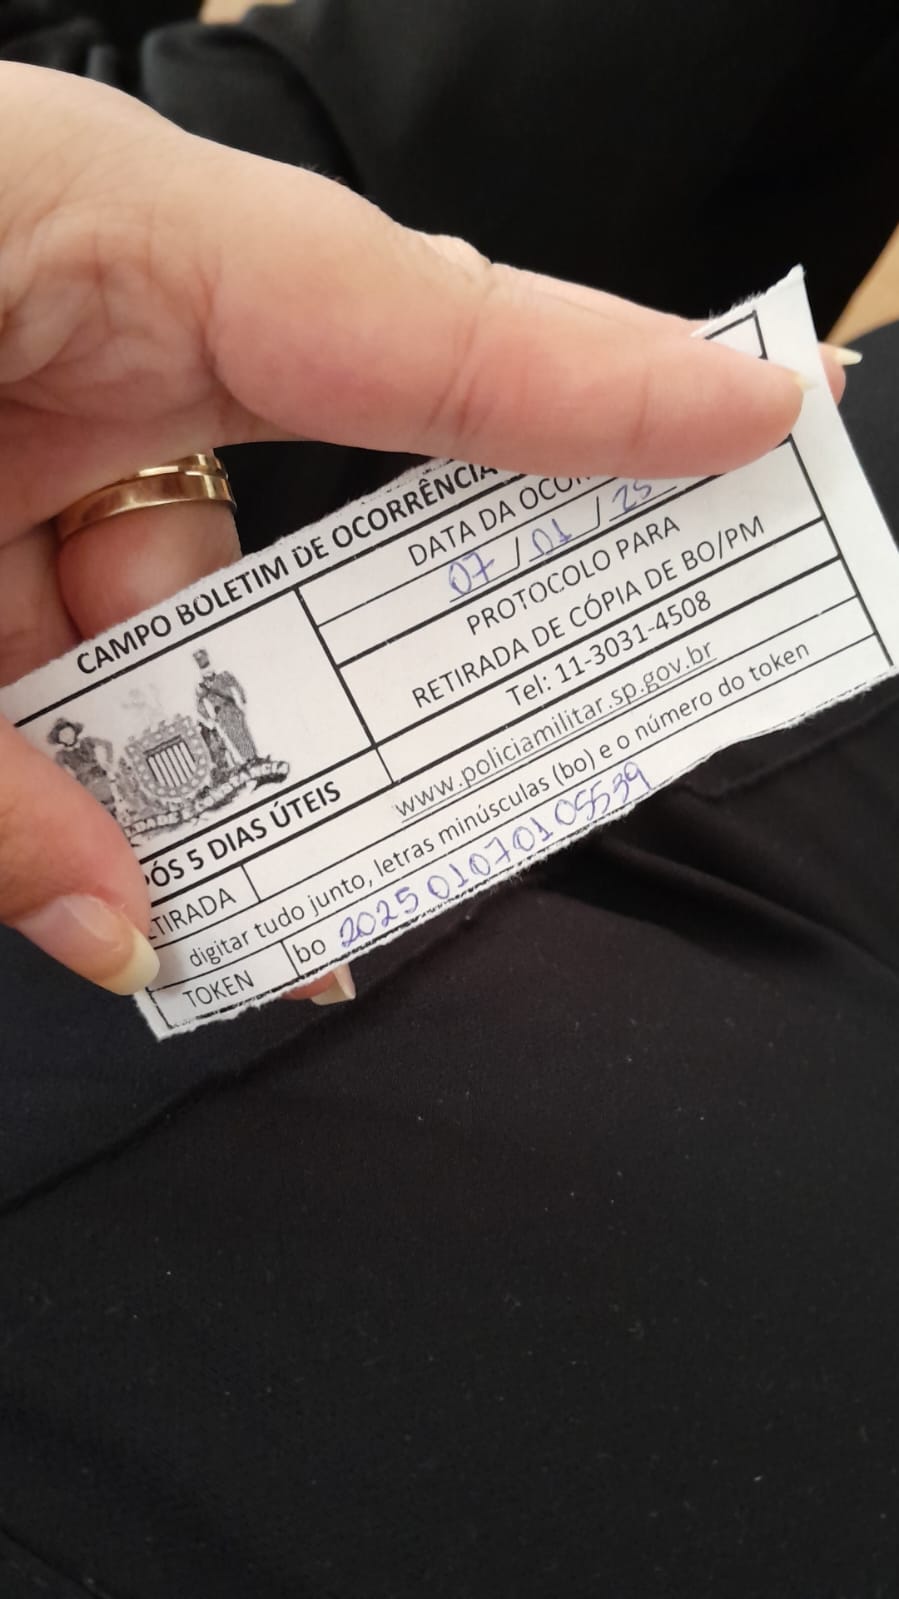 CAMPO BOLETIM DE OCORRÊNCIA
DATA DA OCOR
07 / 01 / 25
PROTOCOLO PARA
RETIRADA DE CÓPIA DE BO/PM
Tel: 11-3031-4508
www.policiamilitar.sp.gov.br
ÓS 5 DIAS ÚTEIS
TIRADA
digitar tudo junto, letras minúsculas (bo) e o número do token
TOKEN bo 202501070105539